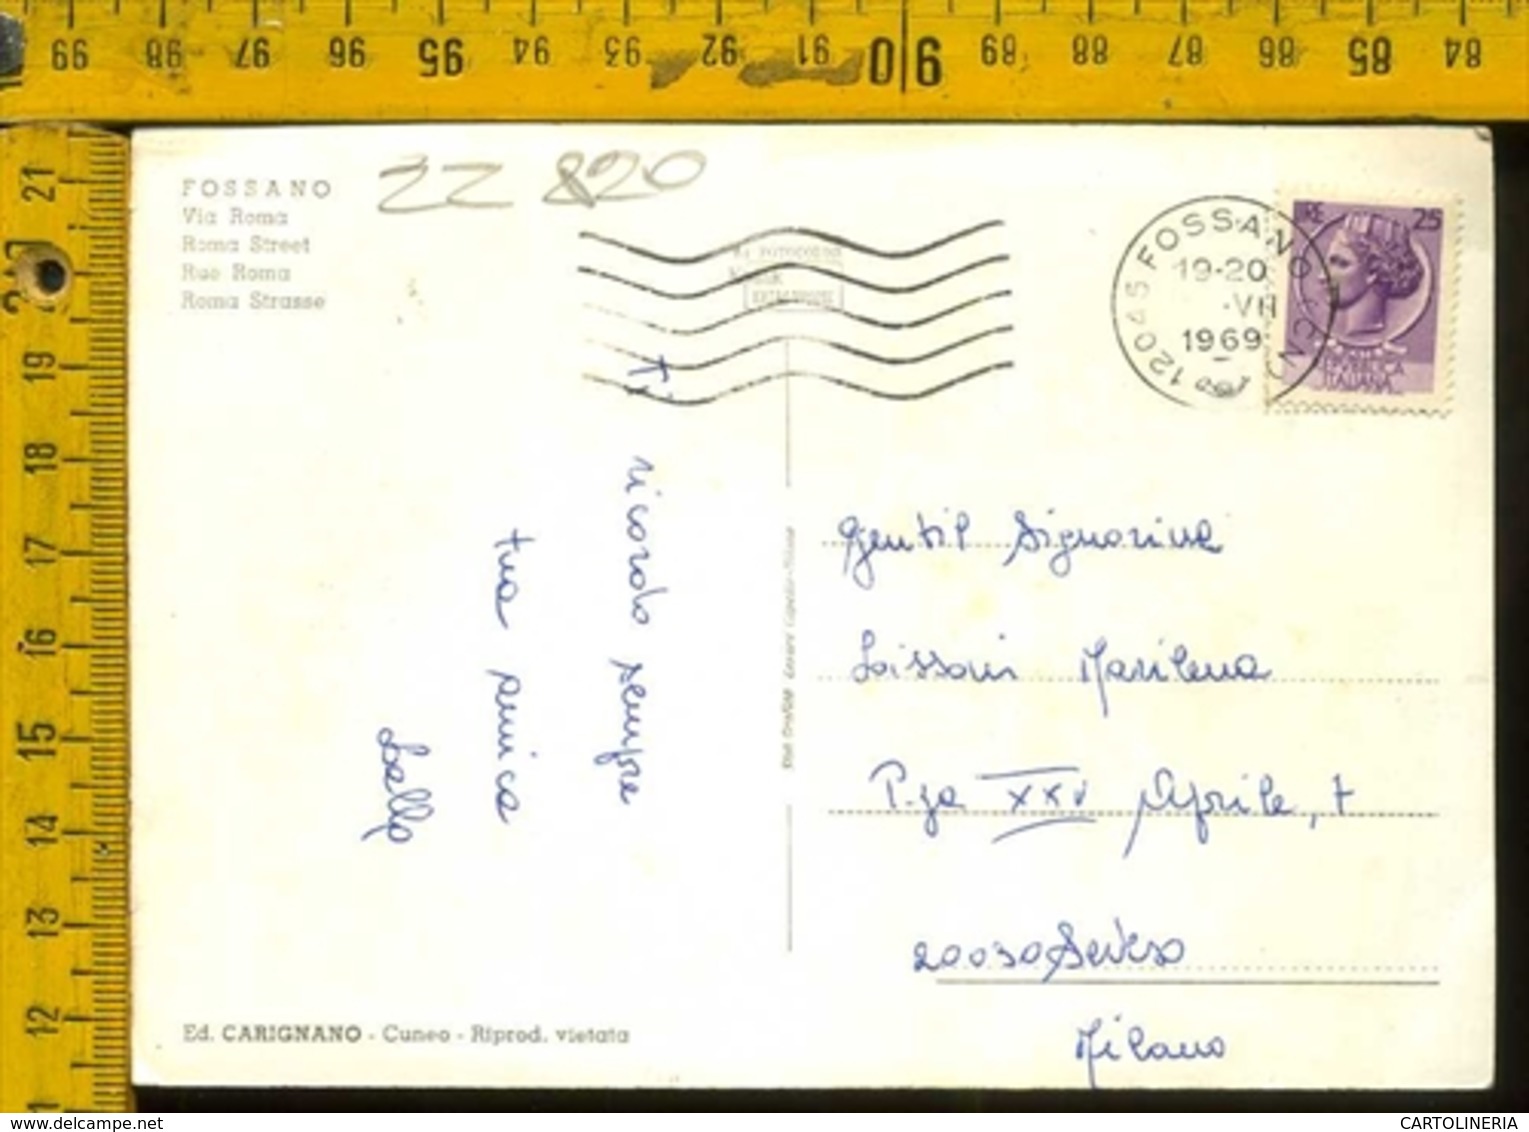 99 98 97 96 95 94 93 92 91 90 89 88 87 86 85 84
21
20
19
18
17
16
15
14
13
12
FOSSANO
Via Roma
Roma Street
Rue Roma
Roma Strasse
22 820
12045 FOSSANO (CN)
19-20
-VII
1969
LIRE 25
REPUBBLICA
ITALIANA
Ti
ricordo sempre
tua amica
Lella
Gentil Signorina
Marilena
P.za XXV Aprile, 7
20030 Seveso
Milano
Ed. CARIGNANO - Cuneo - Riprod. vietata
delcampe.net
CARTOLINERIA